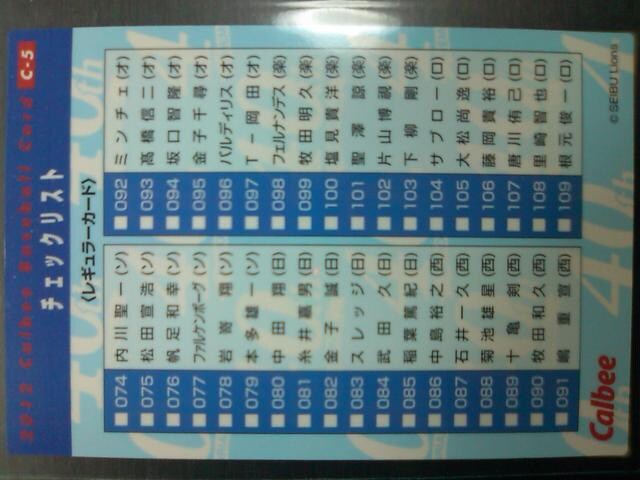 2012 Calbee Baseball Card C-5
チェックリスト
〈レギュラーカード〉
074 内川聖一(ソ)
075 松田宣浩(ソ)
076 帆足和幸(ソ)
077 ファルケンボーグ(ソ)
078 岩嵜 翔(ソ)
079 本多雄一(ソ)
080 中田 翔(日)
081 糸井嘉男(日)
082 金子 誠(日)
083 スレッジ(日)
084 武田 久(日)
085 稲葉篤紀(日)
086 中島裕之(西)
087 石井一久(西)
088 菊池雄星(西)
089 十亀 剣(西)
090 牧田和久(西)
091 嶋 重宣(西)
092 ミンチェ(オ)
093 高橋信二(オ)
094 坂口智隆(オ)
095 金子千尋(オ)
096 バルディリス(オ)
097 T-岡田(オ)
098 フェルナンデス(楽)
099 牧田明久(楽)
100 塩見貴洋(楽)
101 聖澤 諒(楽)
102 片山博視(楽)
103 下柳 剛(楽)
104 サブロー(ロ)
105 大松尚逸(ロ)
106 藤岡貴裕(ロ)
107 唐川侑己(ロ)
108 里崎智也(ロ)
109 根元俊一(ロ)
Calbee
© SEIBU Lions